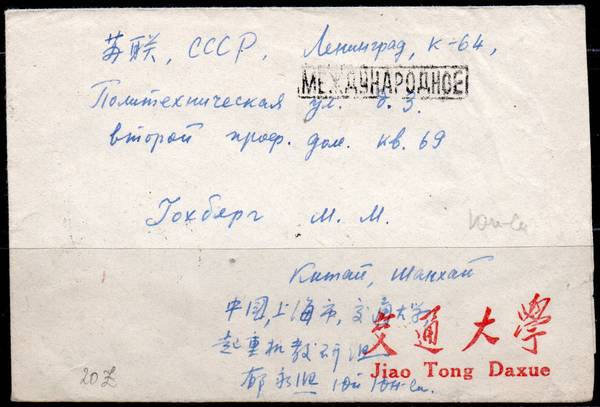 苏联, СССР, Ленинград, К-64,
МЕЖДУНАРОДНОЕ
Политехническая ул. д. 3.
второй проф. дом. кв. 69
Гохберг М. М.
Китай, Шанхай
中国, 上海市, 交通大学
起重机教研组
交通大學
Jiao Tong Daxue
Юй Юн-
20